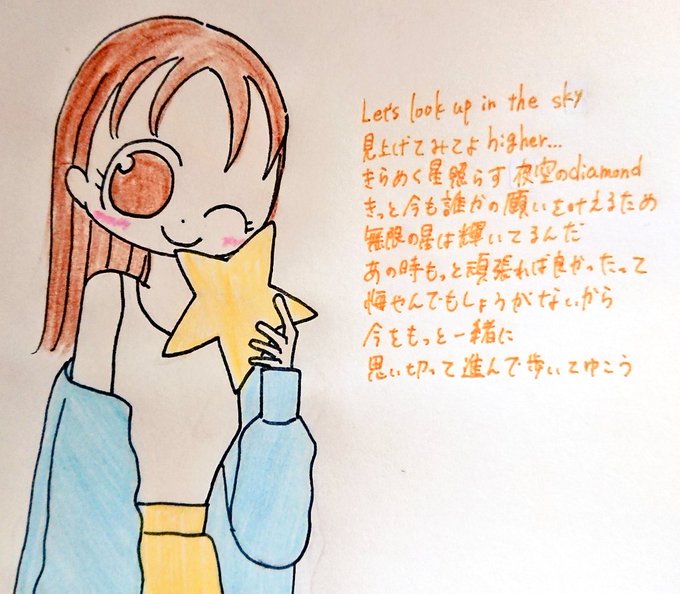 Let's look up in the sky
見上げてみてよ higher...
きらめく星照らす 夜空のdiamond
きっと今も誰かの願いを叶えるため
無限の星は輝いてるんだ
あの時もっと頑張れば良かったって
悔やんでもしょうがないから
今をもっと一緒に
思い切って進んで歩いてゆこう